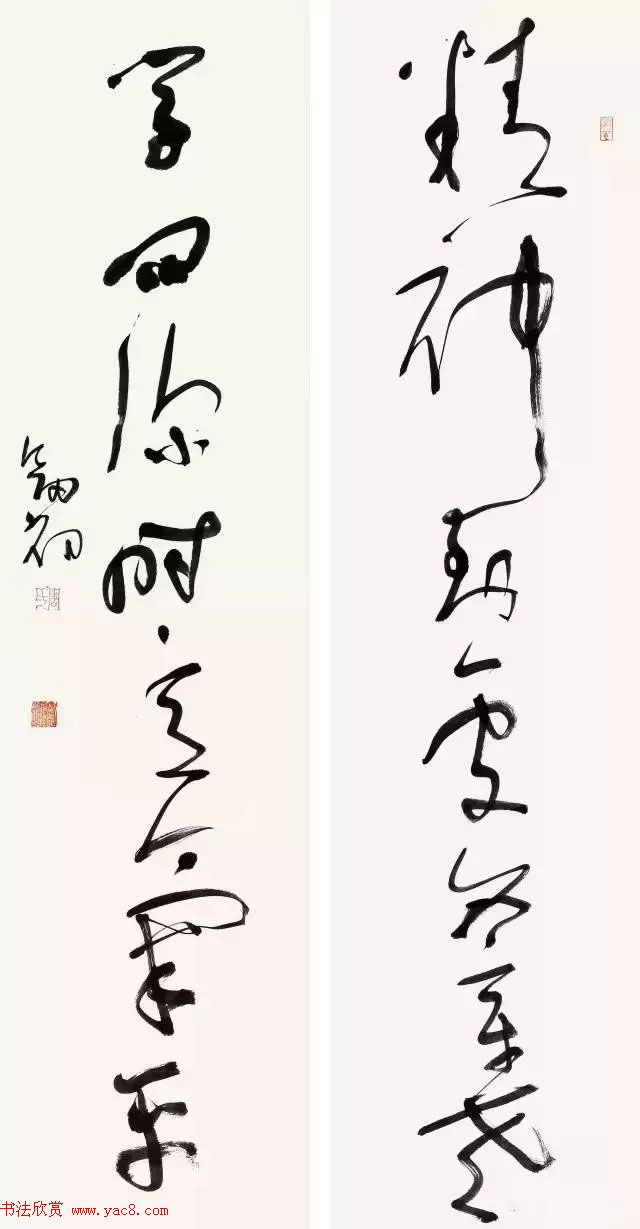 精神到處文章老
學問深時意氣平
书法欣赏 www.yac8.com